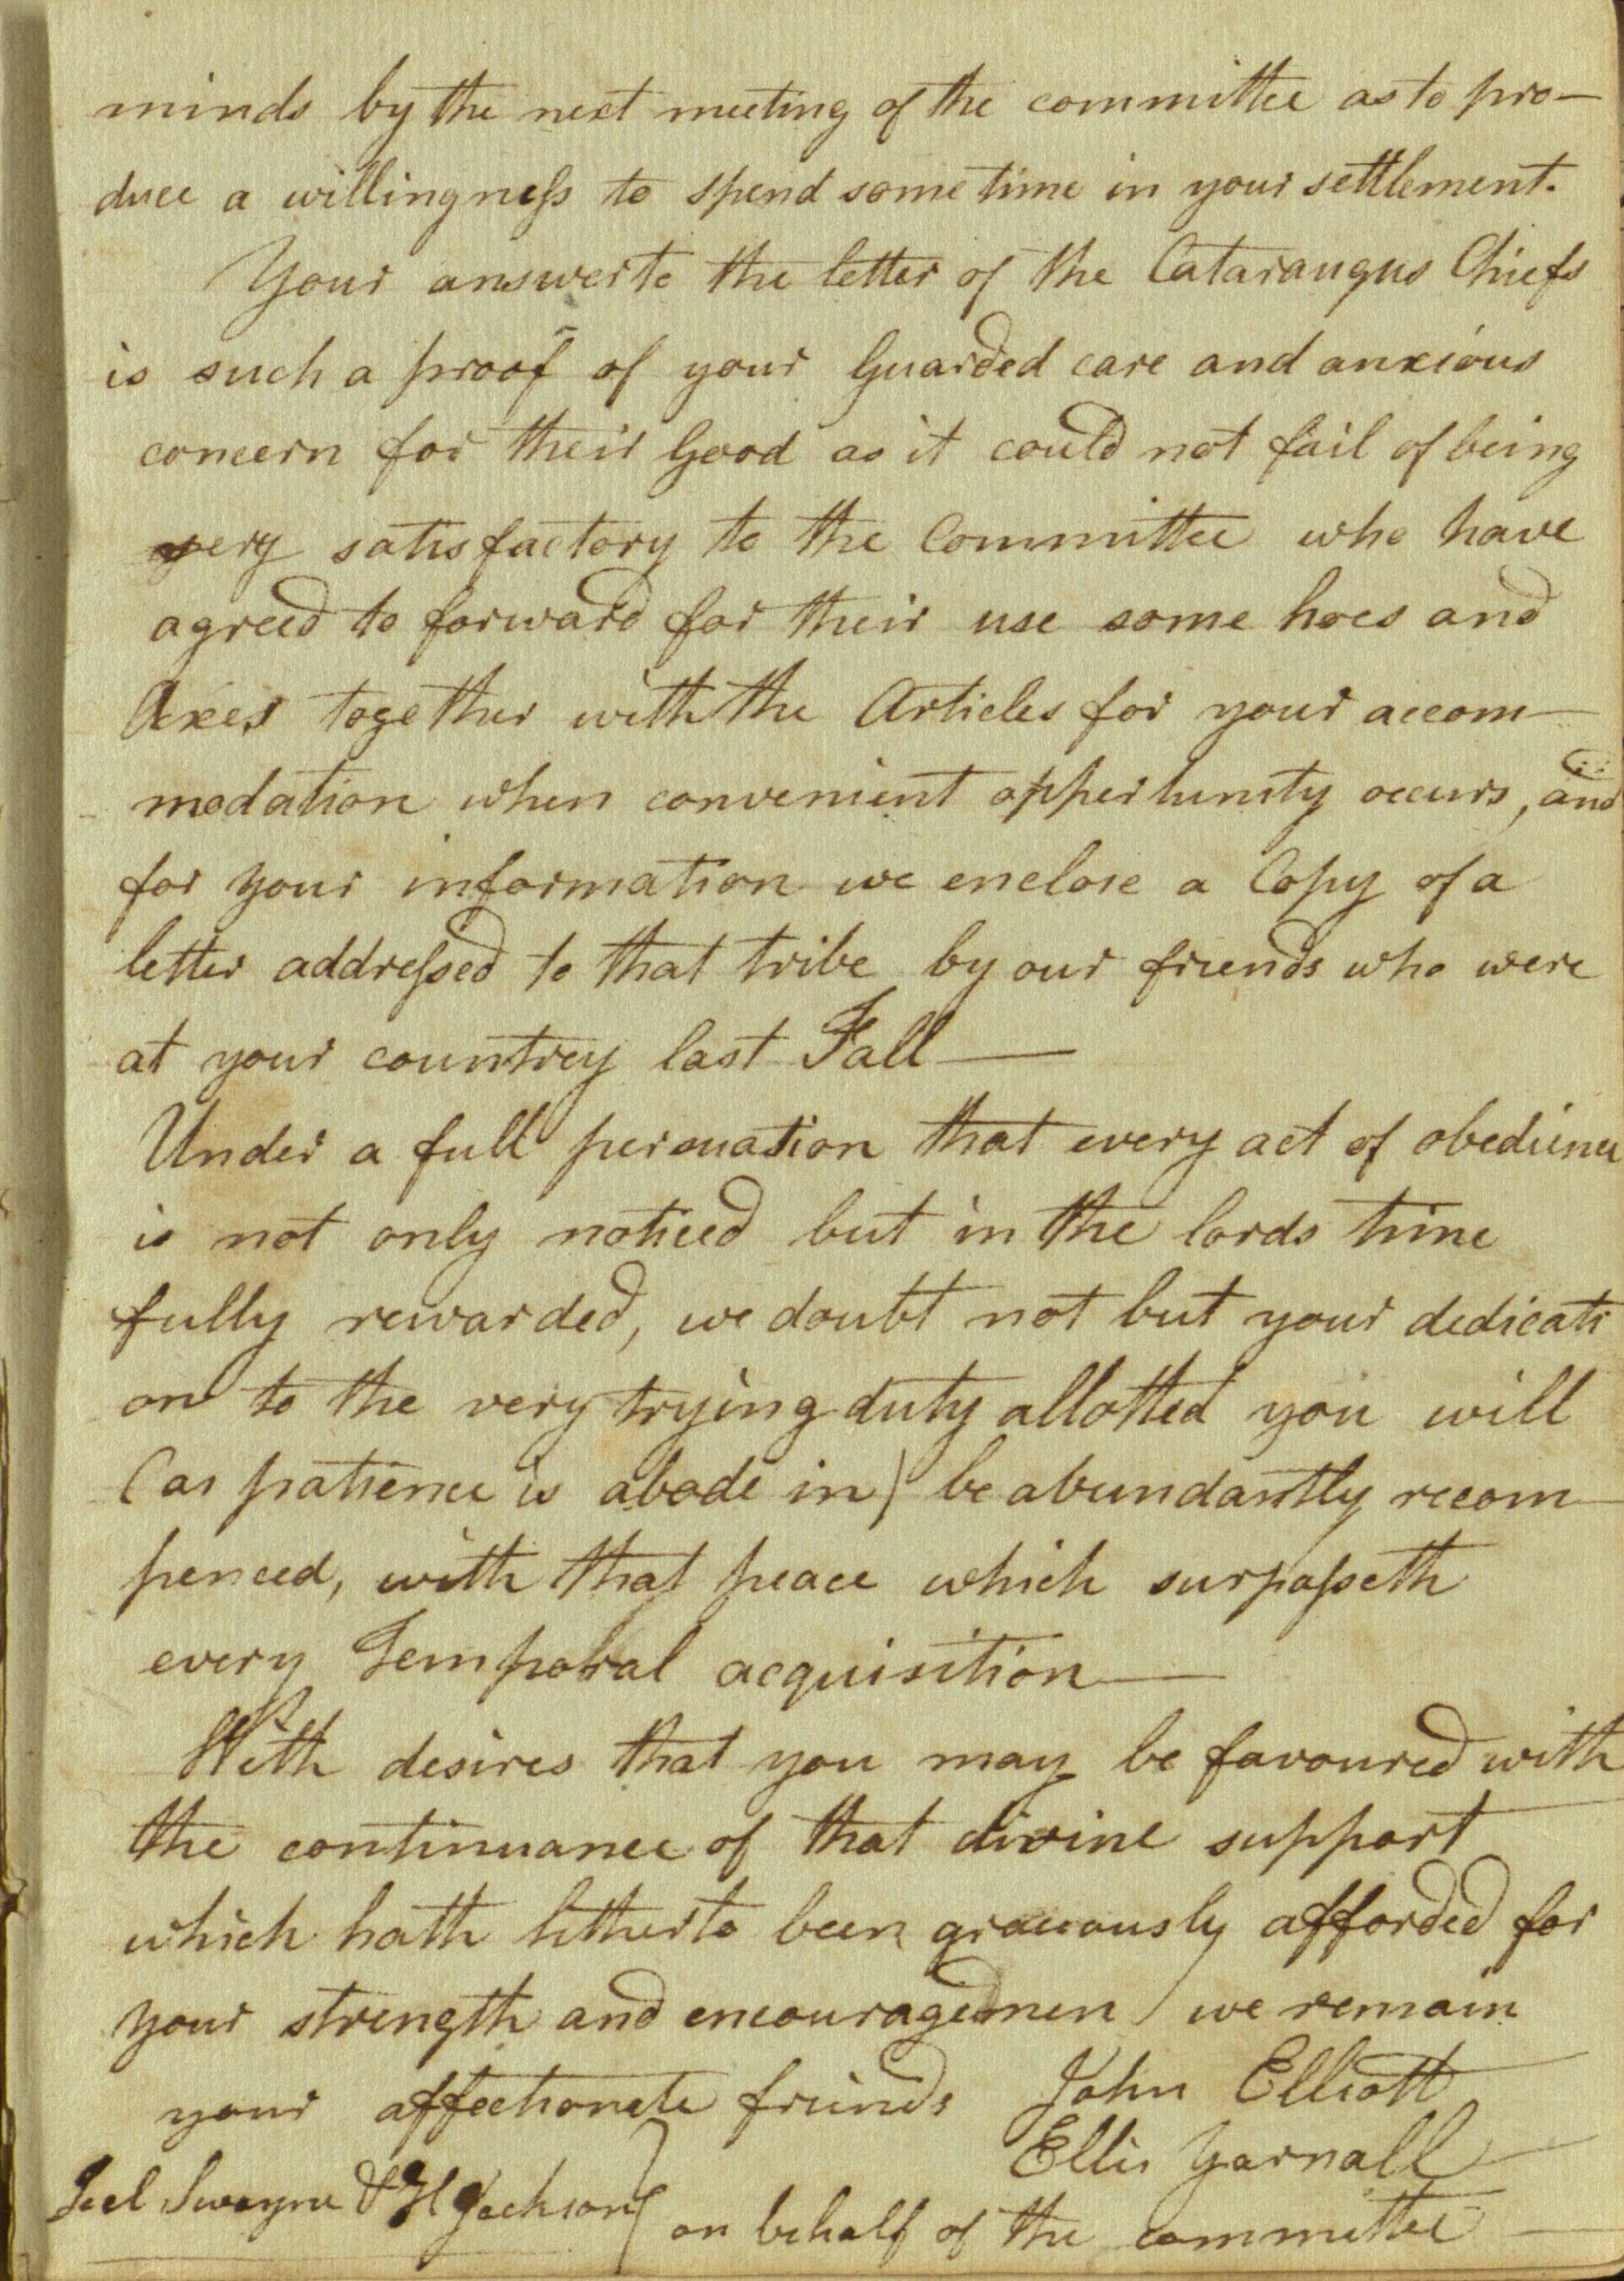 minds by the next meeting of the committee as to pro-
duce a willingness to spend some time in your settlement.
Your answer to the letter of the Cataraugus Chiefs
is such a proof of your Guarded care and anxious
concern for their Good as it could not fail of being
very satisfactory to the Committee who have
agreed to forward for their use some hoes and
Axes together with the Articles for your accom-
modation when convenient oppertunity occurs, and
for your information we enclose a Copy of a
letter addressed to that tribe by our friends who were
at your countrey last Fall —
Under a full persuasion that every act of obedience
is not only noticed but in the lords time
fully rewarded, we doubt not but your dedicati
on to the very trying duty allotted you will
(as patience is abode in) be abundantly recom-
penced, with that peace which surpasseth
every Temporal acquisition —
With desires that you may be favoured with
the continuance of that divine support
which hath hitherto been graciously afforded for
your strength and encouragemen we remain
your affectionate friends John Elliott
Ellis Yarnall
Joel Swayne & H Jackson } on behalf of the committee